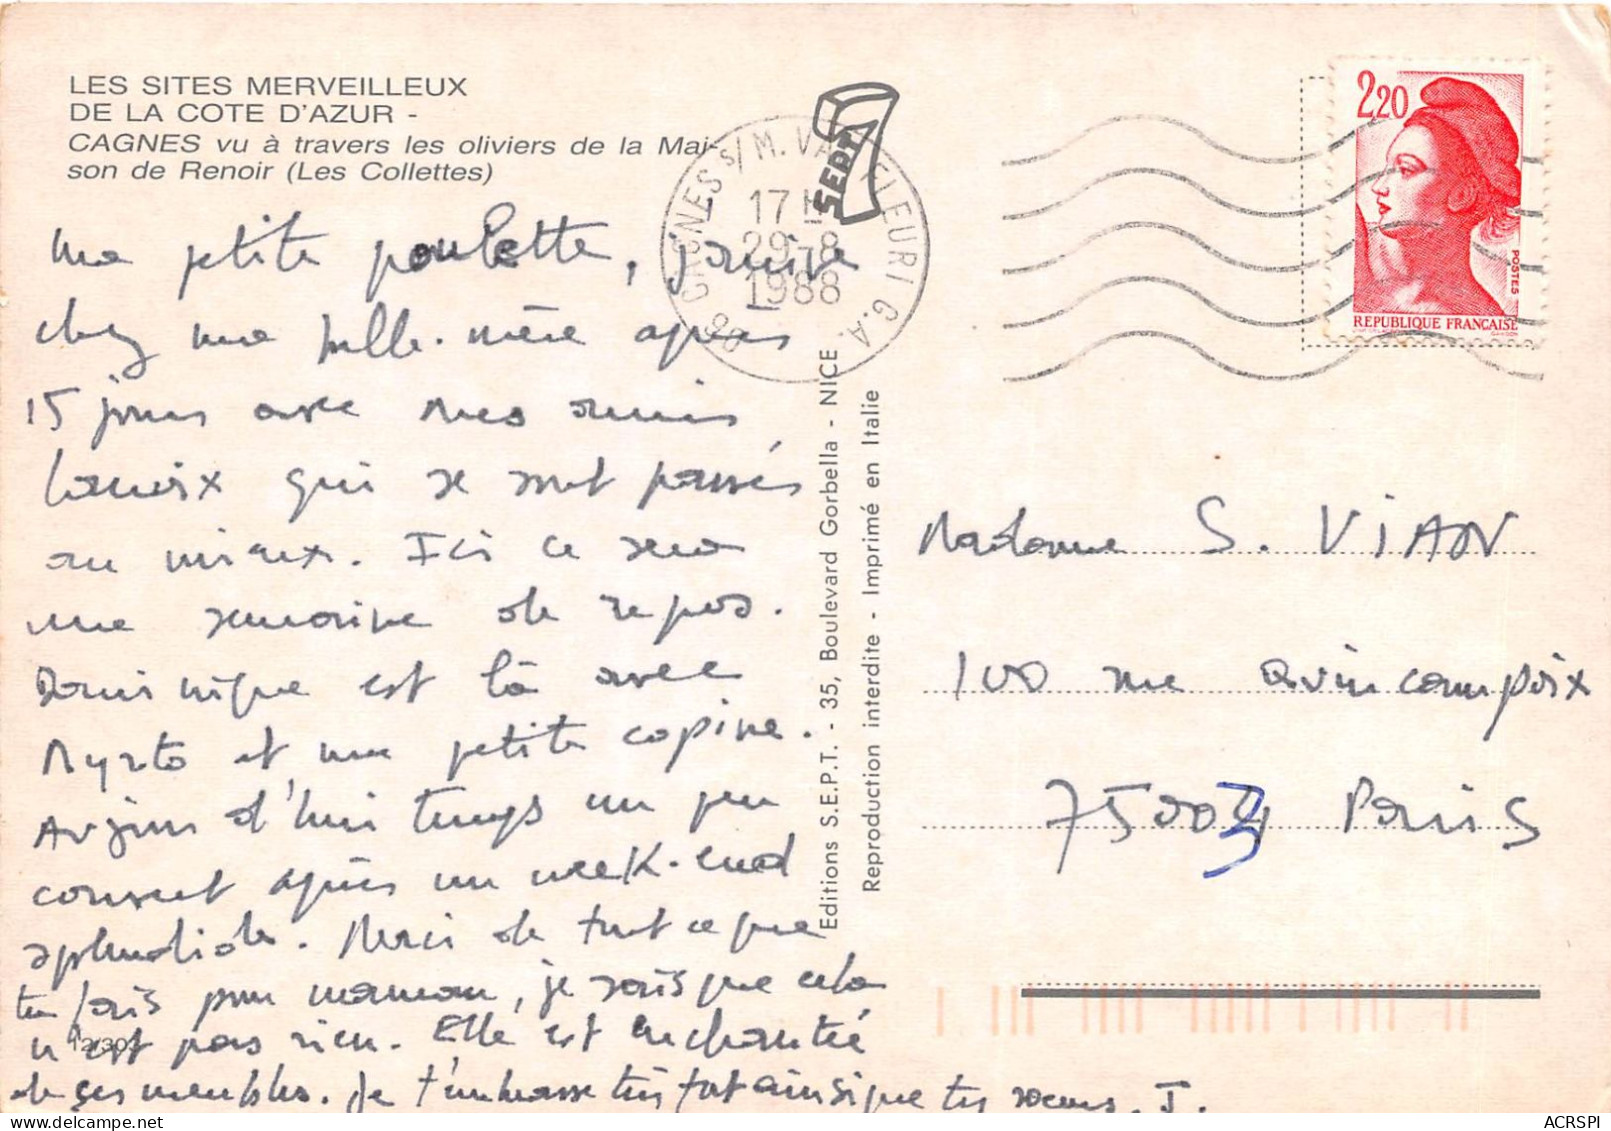 LES SITES MERVEILLEUX
DE LA COTE D'AZUR -
CAGNES vu à travers les oliviers de la Mai-
son de Renoir (Les Collettes)
Ma petite poulette, j'arrive
chez ma belle-mère après
15 jours avec mes amis
qui se sont passés
au mieux. Ici ce sera
une semaine de repos.
Dominique est là avec
Myrto et une petite copine.
Aujourd'hui temps un peu
couvert après un week-end
splendide. Merci de tout ce que
tu fais pour maman, je sais que cela
n'est pas rien. Elle est enchantée
de ses meubles. Je t'embrasse très fort ainsi que tes soeurs. J.
12/303
CAGNES s/ M. VAL FLEURI G.A.
06
17 H
29-8
1988
7 SEPT
Editions S.E.P.T. - 35, Boulevard Gorbella - NICE
Reproduction interdite - Imprimé en Italie
2,20
POSTES
REPUBLIQUE FRANÇAISE
GANDON
Madame S. VIAN
100 rue Quincampoix
75003 Paris
ACRSPI